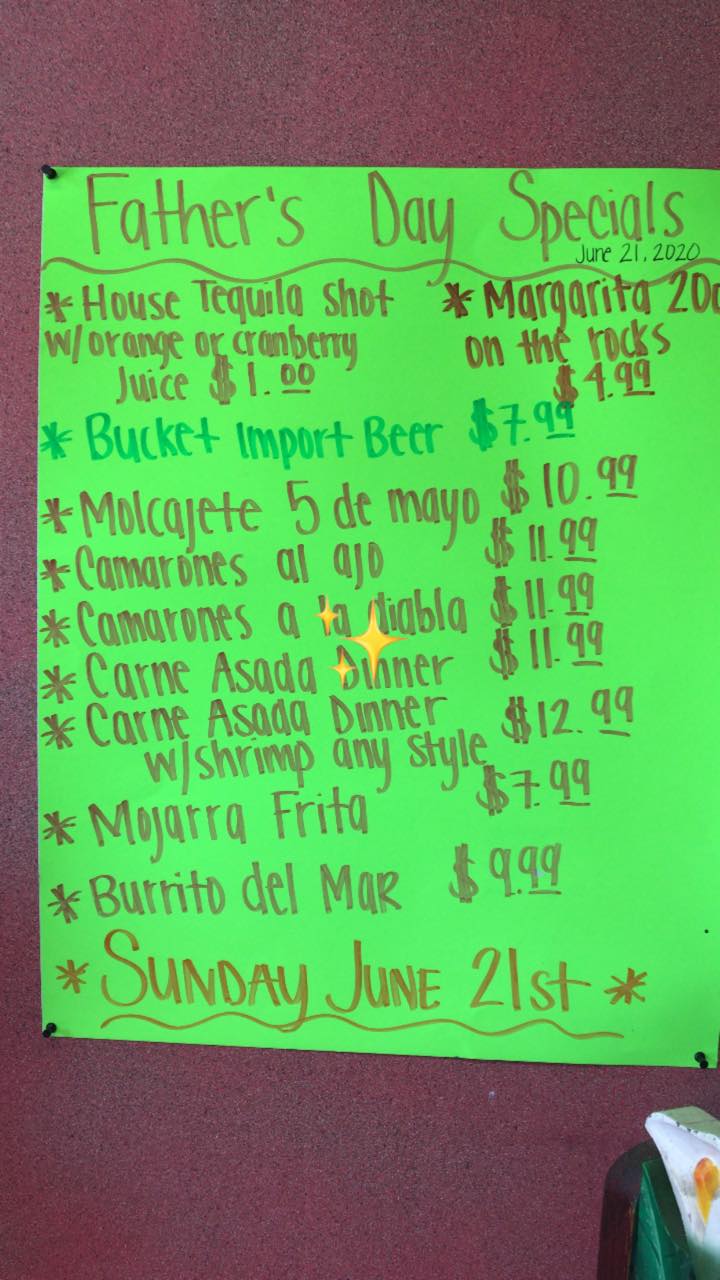 Father's Day Specials
June 21, 2020
* House Tequila Shot
w/ orange or cranberry
Juice $1.00
* Margarita
on the rocks
$4.99
* Bucket Import Beer $7.99
* Molcajete 5 de mayo $10.99
* Camarones al ajo $11.99
* Camarones a la diabla $11.99
* Carne Asada Dinner $11.99
* Carne Asada Dinner $12.99
w/shrimp any style
* Mojarra Frita $7.99
* Burrito del Mar $9.99
* Sunday June 21st *